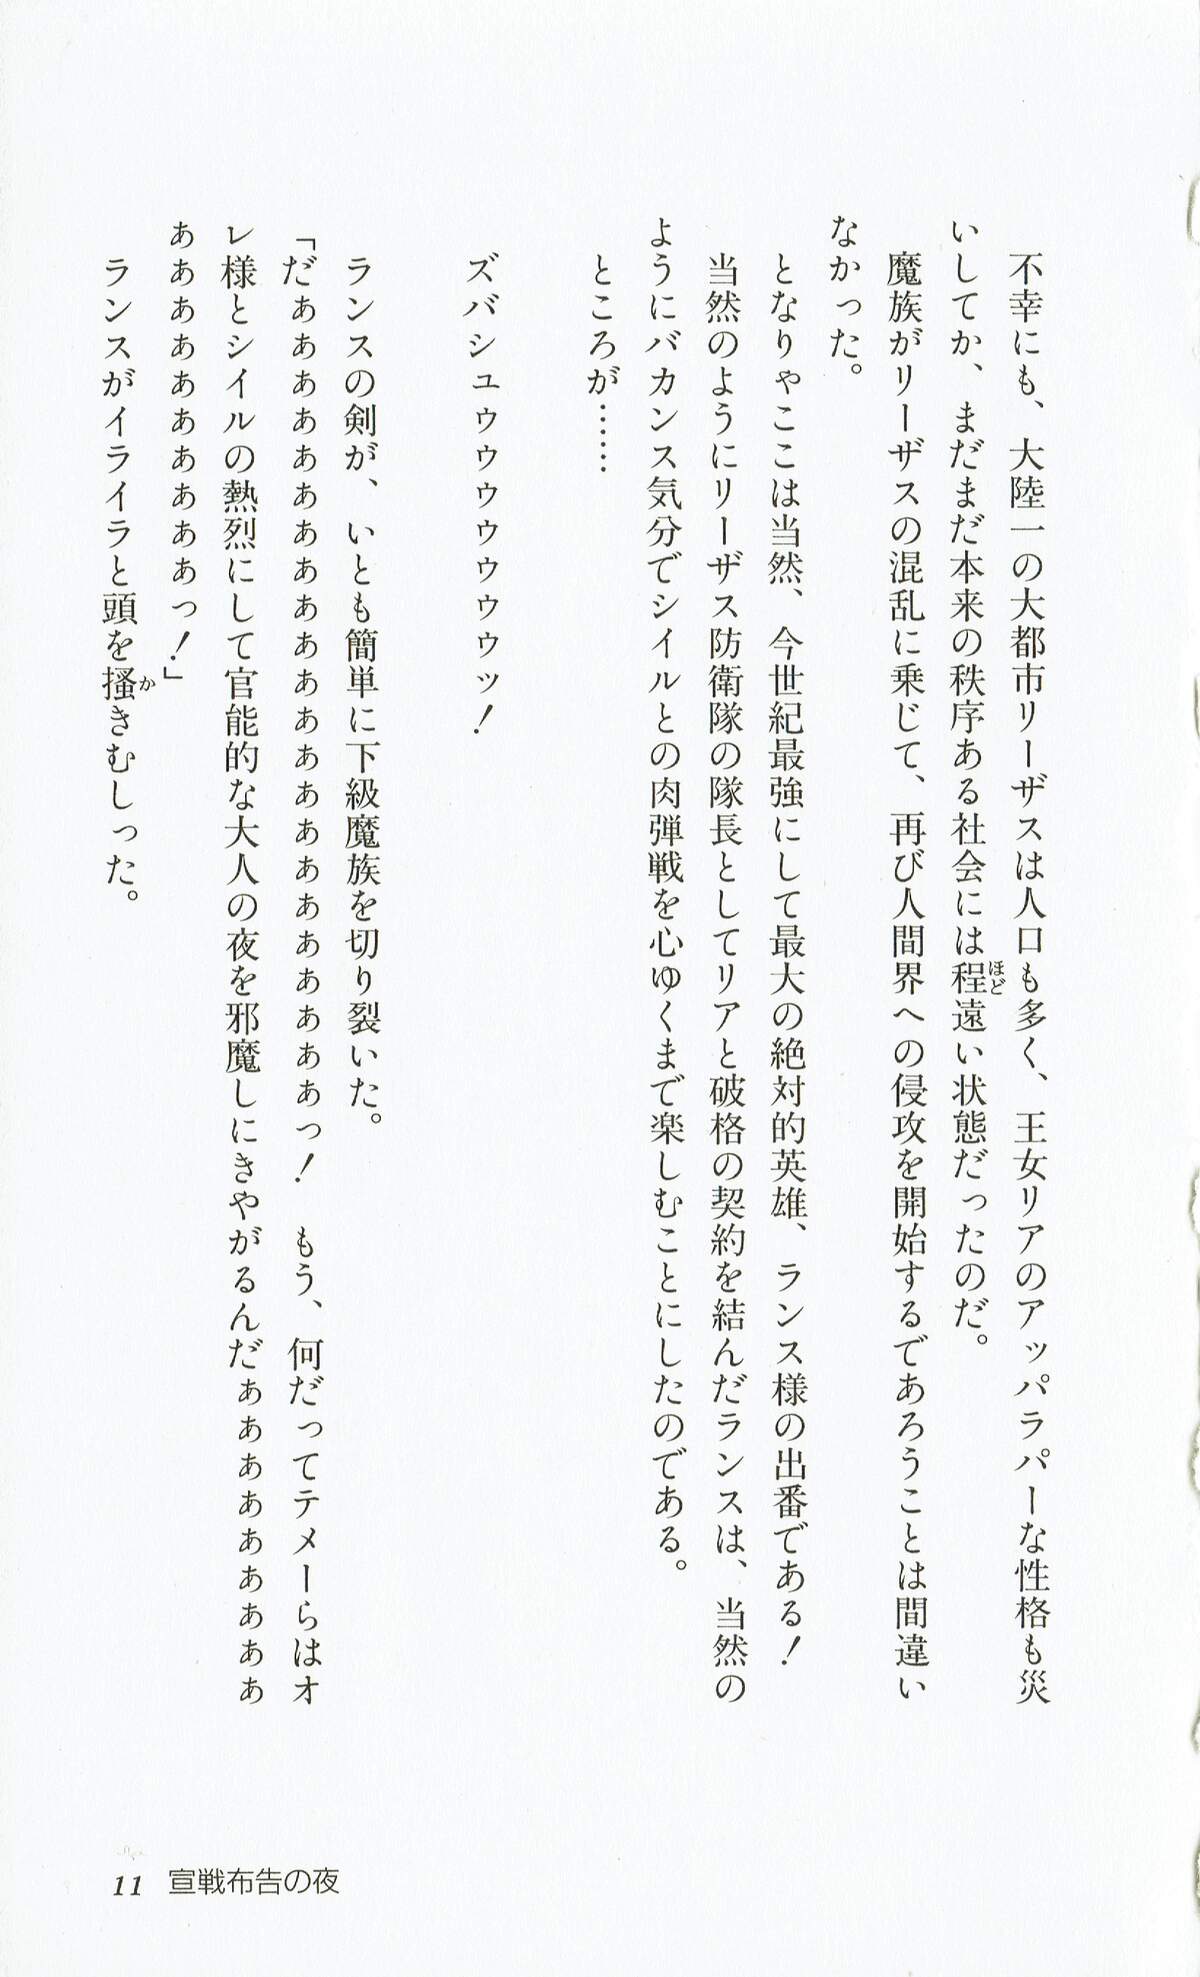 不幸にも、大陸一の大都市リーザスは人口も多く、王女リアのアッパラパーな性格も災
いしてか、まだまだ本来の秩序ある社会には程遠い状態だったのだ。
　魔族がリーザスの混乱に乗じて、再び人間界への侵攻を開始するであろうことは間違い
なかった。
　となりゃここは当然、今世紀最強にして最大の絶対的英雄、ランス様の出番である！
　当然のようにリーザス防衛隊の隊長としてリアと破格の契約を結んだランスは、当然の
ようにバカンス気分でシイルとの肉弾戦を心ゆくまで楽しむことにしたのである。
　ところが……
　ズバシュゥゥゥゥゥゥゥッ！
　ランスの剣が、いとも簡単に下級魔族を切り裂いた。
「だぁぁぁぁぁぁぁぁぁぁぁぁぁぁぁぁぁぁぁぁぁぁっ！　もう、何だってテメーらはオ
レ様とシイルの熱烈にして官能的な大人の夜を邪魔しにきやがるんだぁぁぁぁぁぁぁぁぁ
ぁぁぁぁぁぁぁぁぁぁっ！」
　ランスがイライラと頭を掻きむしった。
11　宣戦布告の夜